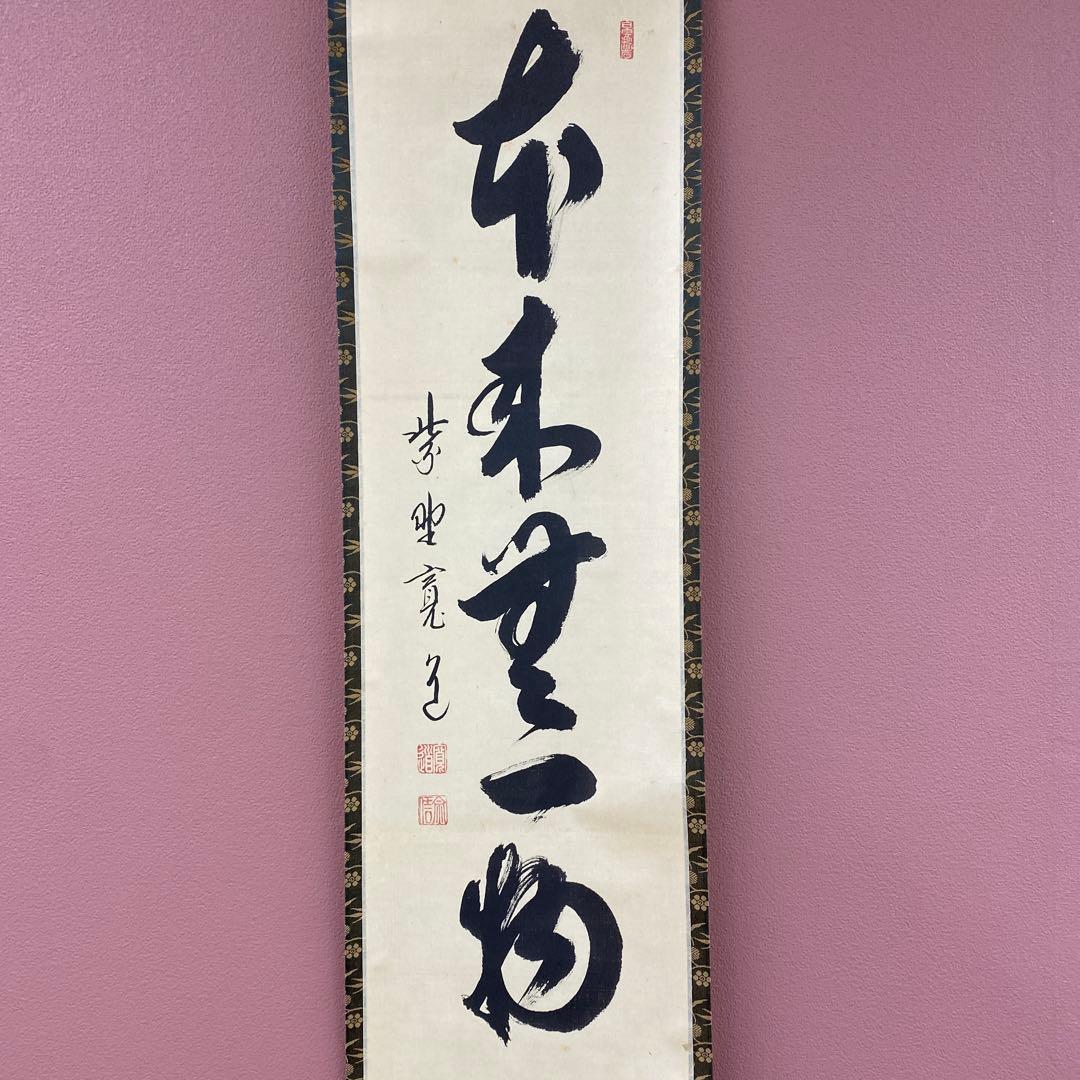 本来無一物
紫野寛道
寛道